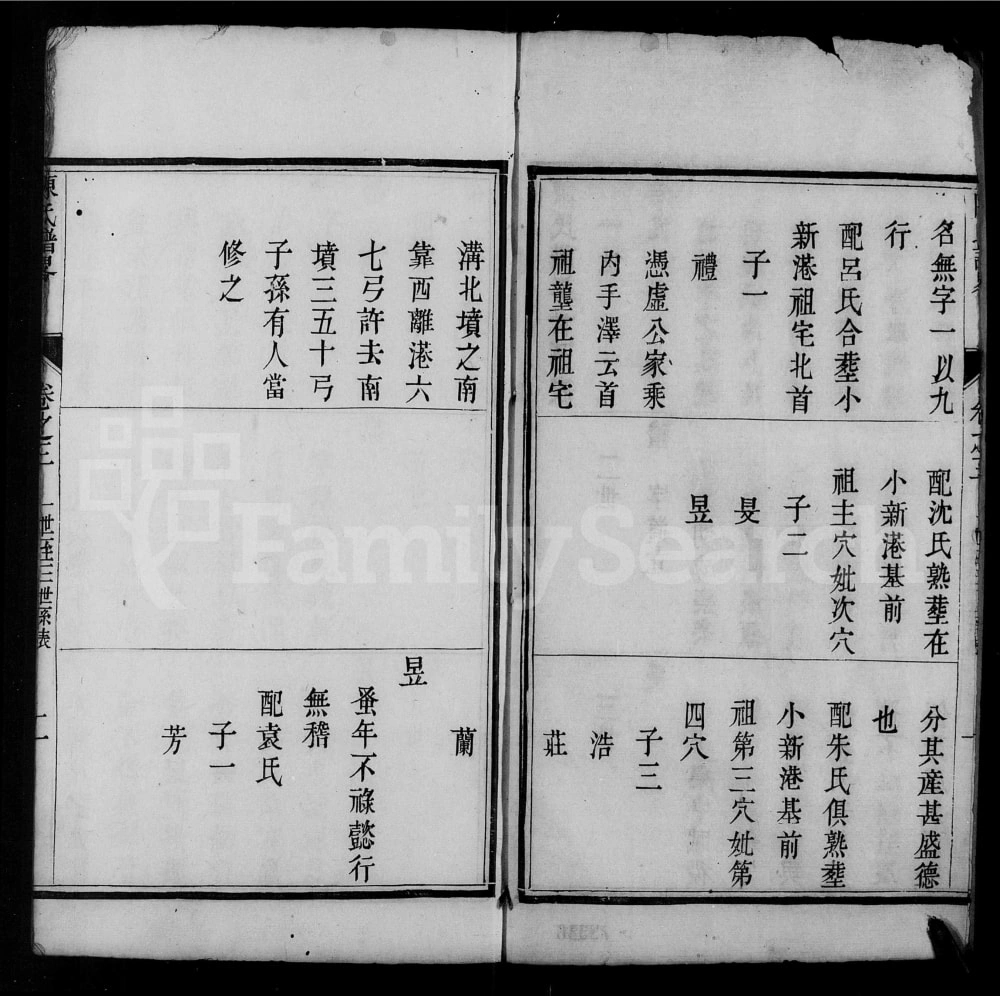 名無字一以九
行
配呂氏合塟小
新港祖宅北首
子一
禮
憑虛公家乘
内手澤云首
祖壟在祖宅
配沈氏熟塟在
小新港基前
祖主穴妣次穴
子二
旻
昱
分其産甚盛德
也
配朱氏俱熟塟
小新港基前
祖第三穴妣第
四穴
子三
浩
莊
溝北墳之南
靠西離港六
七弓許去南
墳三五十弓
子孫有人當
修之
蘭
昱
蚤年不祿懿行
無稽
配袁氏
子一
芳
氏譜畧
卷之三
一世至三世孫表
二
FamilySearch